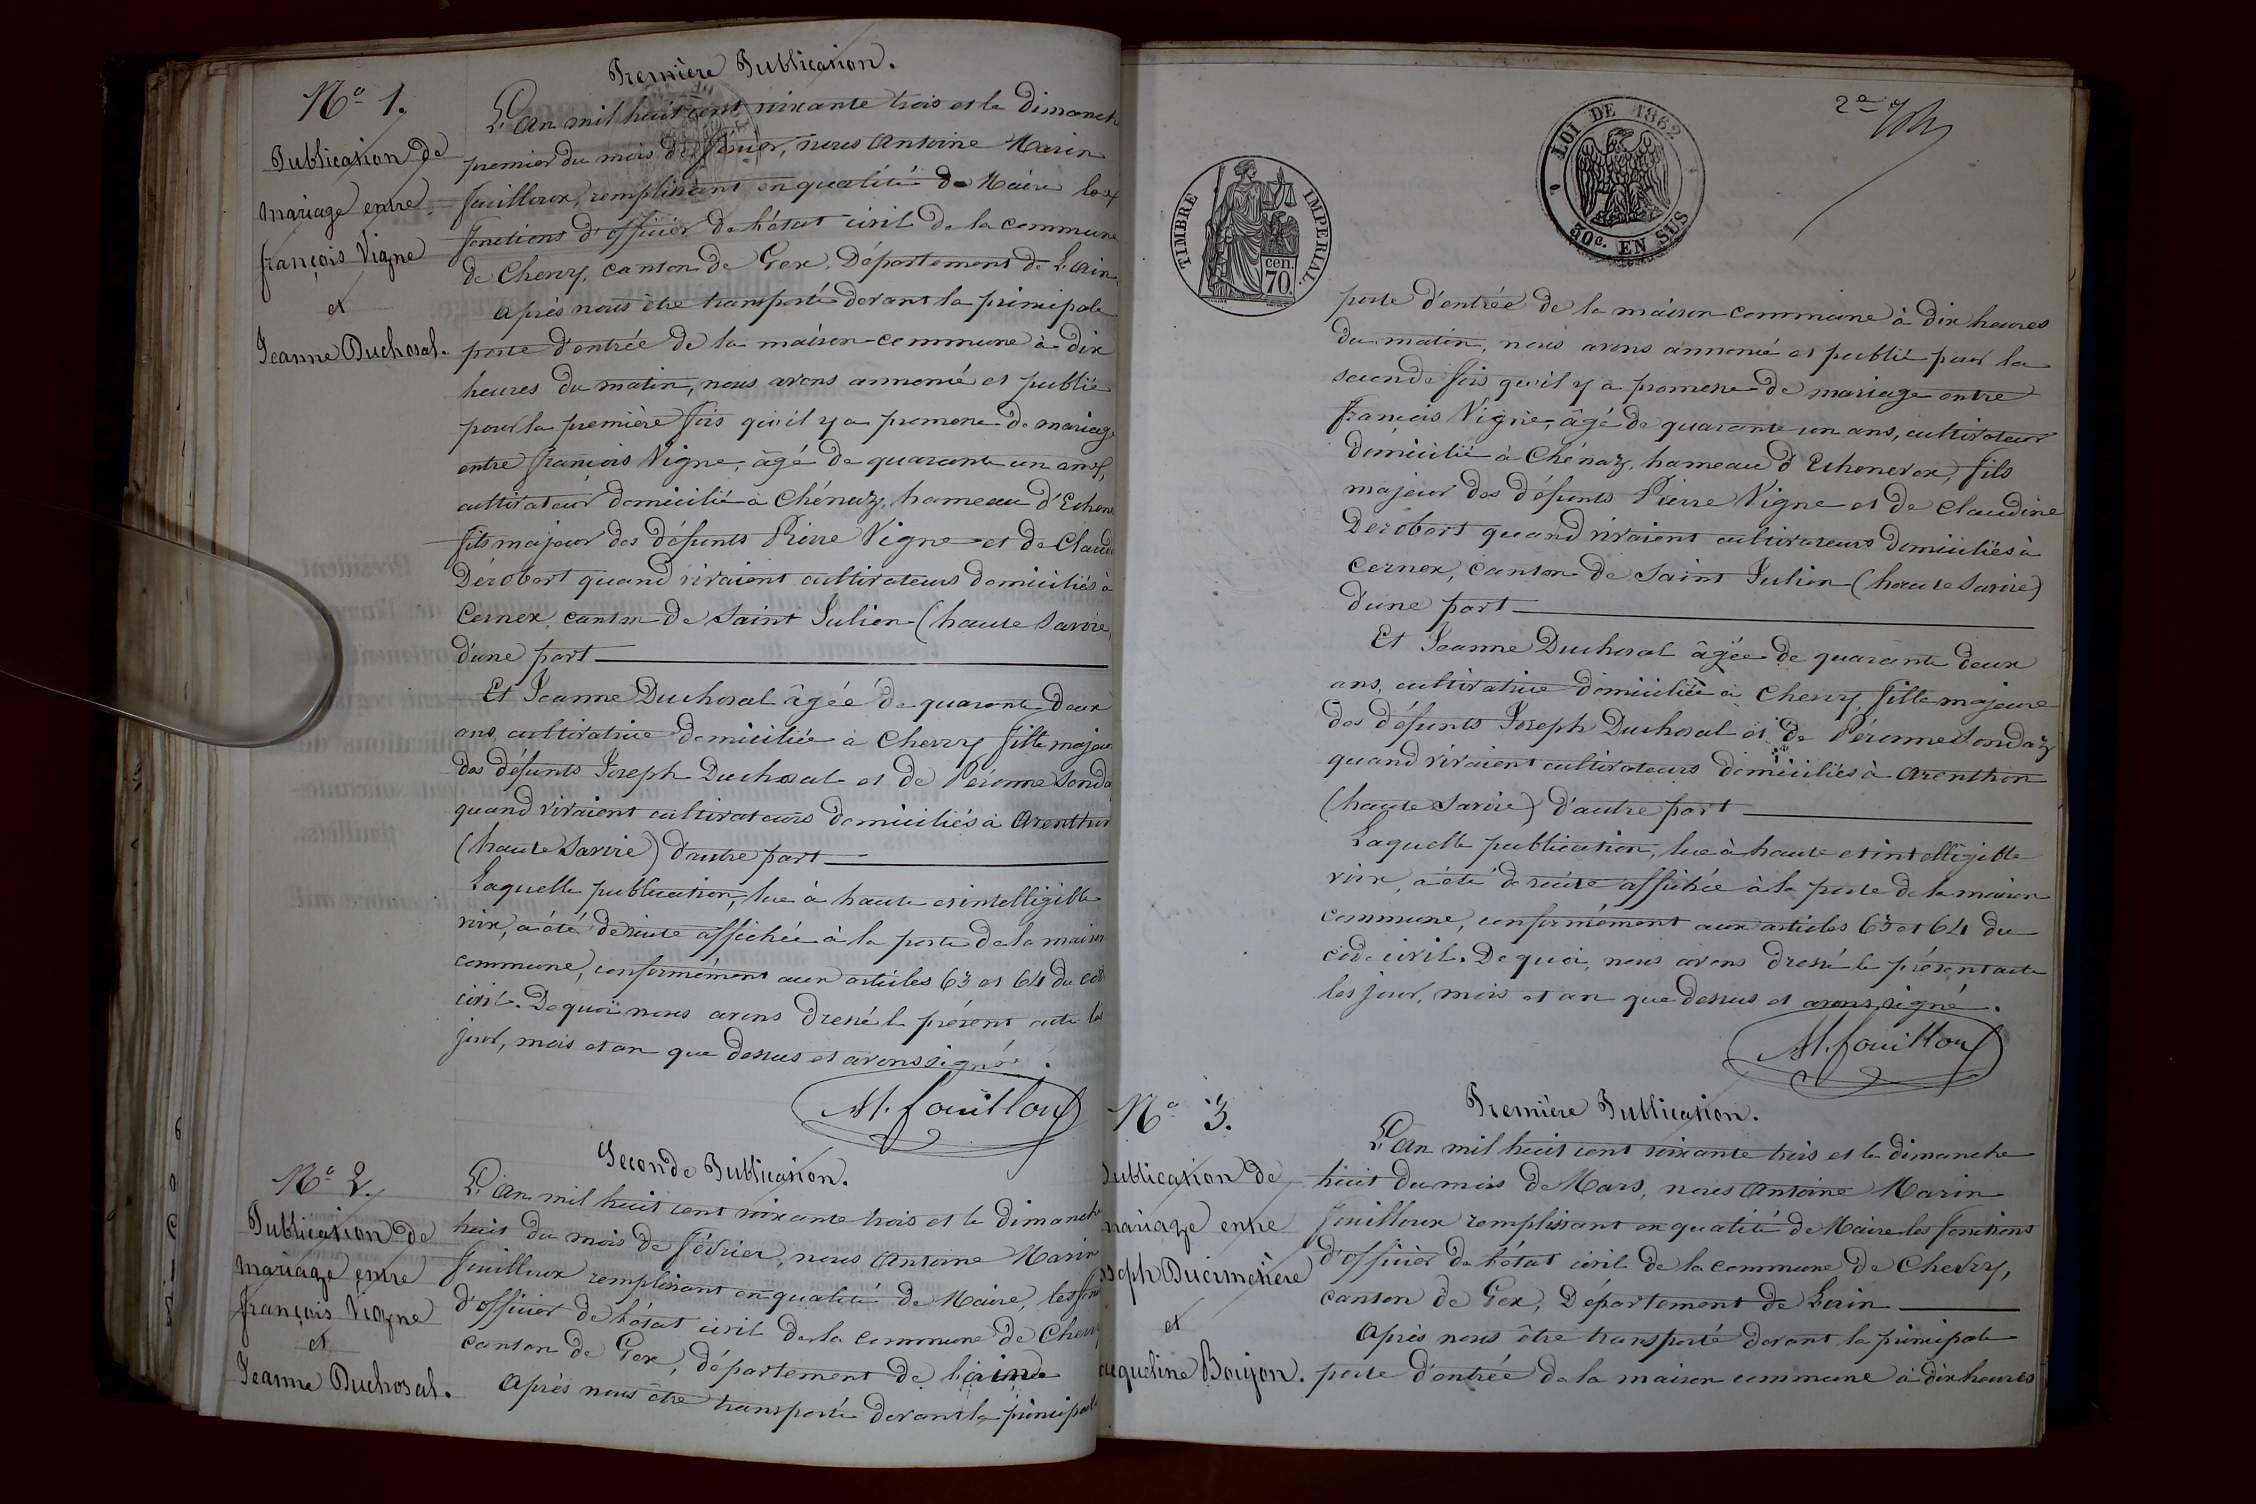 Première Publication.
Nº 1.
Publication de
mariage entre
françois Vigne
et
Jeanne Duchosal.
L'an mil huit cent soixante trois et le dimanch
premier du mois de février, nous Antoine Marin
fouilloux, remplissant en qualité de Maire les
fonctions d'officier de l'état civil de la commune
de Chevry, canton de Gex, Département de L'ain
après nous être transporté devant la principale
porte d'entrée de la maison commune à dix
heures du matin, nous avons annoncé et publié
pour la première fois qu'il y a promesse de mariage
entre françois Vigne, âgé de quarante un ans,
cultivateur domicilié à Chénaz, hameau d'Echene
fils majeur des défunts Pierre Vigne et de Claud
Dérobert quand vivaient cultivateurs domiciliés à
Cernex, canton de Saint Julien (haute Savoie,
d'une part
Et Jeanne Duchosal âgée de quarante deux
ans, cultivatrice domiciliée à Chevry fille majeu
des défunts Joseph Duchosal et de Péronne Sonda
quand vivaient cultivateurs domiciliés à Arenthon
(haute Savoie) d'autre part
Laquelle publication, lue à haute et intelligible
voix, a été de suite affichée à la porte de la maison
commune, conformément aux articles 63 et 64 du cod
civil. De quoi nous avons dressé le présent acte les
jour, mois et an que dessus et avons signé.
M. fouilloux
Seconde Publication.
Nº 2.
Publication de
mariage entre
françois Vigne
et
Jeanne Duchosal.
L'an mil huit cent soixante trois et le dimanche
huit du mois de février, nous Antoine Marin
fouilloux remplissant en qualité de Maire, les fon
d'officier de l'état civil de la commune de Chevry
canton de Gex, département de l'ain
Après nous être transporté devant la principale
2e
LOI DE 1862
30c. EN SUS
TIMBRE IMPERIAL.
cen.
70.
porte d'entrée de la maison commune à dix heures
du matin, nous avons annoncé et publié pour la
seconde fois qu'il y a promesse de mariage entre
françois Vigne, âgé de quarante un ans, cultivateur
domicilié à Chénaz, hameau d'Echenevex, fils
majeur des défunts Pierre Vigne et de Claudine
Dérobert quand vivaient cultivateurs domiciliés à
Cernex, canton de Saint Julien (haute Savoie)
d'une part
Et Jeanne Duchosal âgée de quarante deux
ans, cultivatrice domiciliée à Chevry, fille majeure
des défunts Joseph Duchosal et de Péronne Sondaz
quand vivaient cultivateurs domiciliés à Arenthon
(haute Savoie) d'autre part
Laquelle publication, lue à haute et intelligible
voix, a été de suite affichée à la porte de la maison
commune, conformément aux articles 63 et 64 du
code civil. De quoi, nous avons dressé le présent acte
les jour, mois et an que dessus et avons signé.
M. fouilloux
Première Publication.
Nº 3.
Publication de
mariage entre
oseph Ducimetière
et
acqueline Boujon.
L'an mil huit cent soixante trois et le dimanche
huit du mois de Mars, nous Antoine Marin
fouilloux remplissant en qualité de Maire les fonctions
d'officier de l'état civil de la commune de Chevry,
canton de Gex, Département de Lain
Après nous être transporté devant la principale
porte d'entrée de la maison commune à dix heures